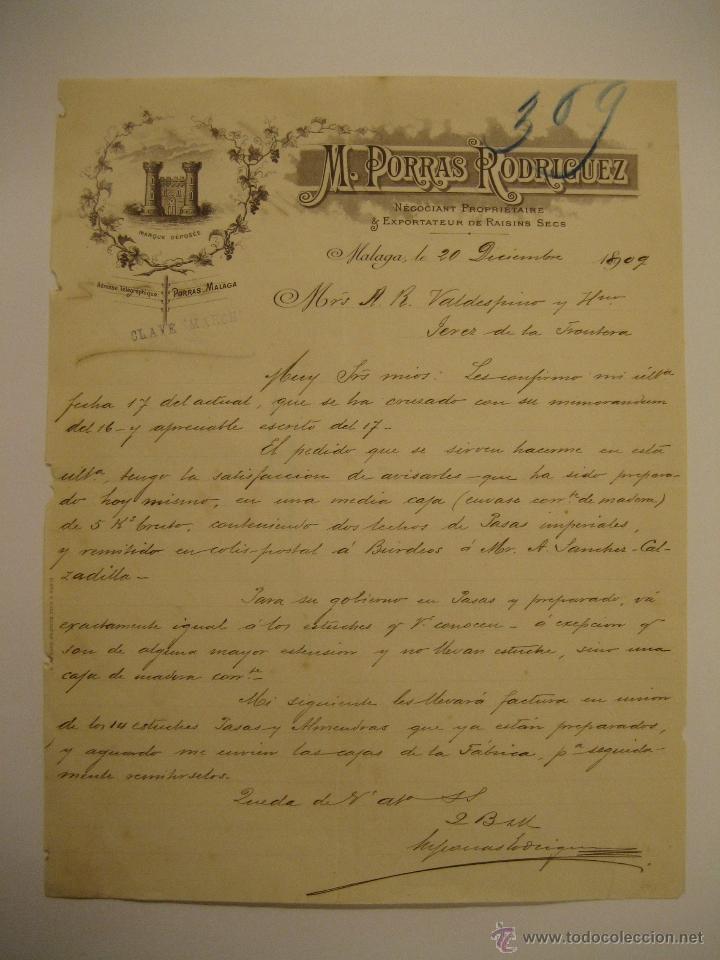 369
M. PORRAS RODRIGUEZ
NÉGOCIANT PROPRIÉTAIRE
& EXPORTATEUR DE RAISINS SECS
MARQUE DÉPOSÉE
Adresse Télégraphique PORRAS, MALAGA
CLAVE "MARCH
Malaga, le 20 Diciembre 1909
Mrs A. R. Valdespino y Hno
Jerez de la Frontera
Muy Srs mios: Les confirmo mi ultª
fecha 17 del actual, que se ha cruzado con su memorandum
del 16- y apreciable escrito del 17-
El pedido que se sirven hacerme en está
ultª, tengo la satisfaccion de avisarles- que ha sido prepara-
do hoy mismo, en una media caja (envase corrte de madera)
de 5 Ks bruto, conteniendo dos lechos de Pasas imperiales,
y remitido en colis-postal á Burdeos á Mr. A. Sanchez-Cal-
zadilla-
Para su gobierno en Pasas y preparado, vá
exactamente igual á los estuches q V. conocen - á exepcion q
son de alguna mayor estension y no llevan estuche, sino una
caja de madera corrte-
Mi siguiente les llevará factura en union
de los 14 estuches Pasas y Almendras que ya están preparados,
y aguardo me envien las cajas de la Fábrica, pª seguida-
mente remitirselos.
Queda de V. ato SS
Q B SM
M Porras Rodriguez
www.todocoleccion.net